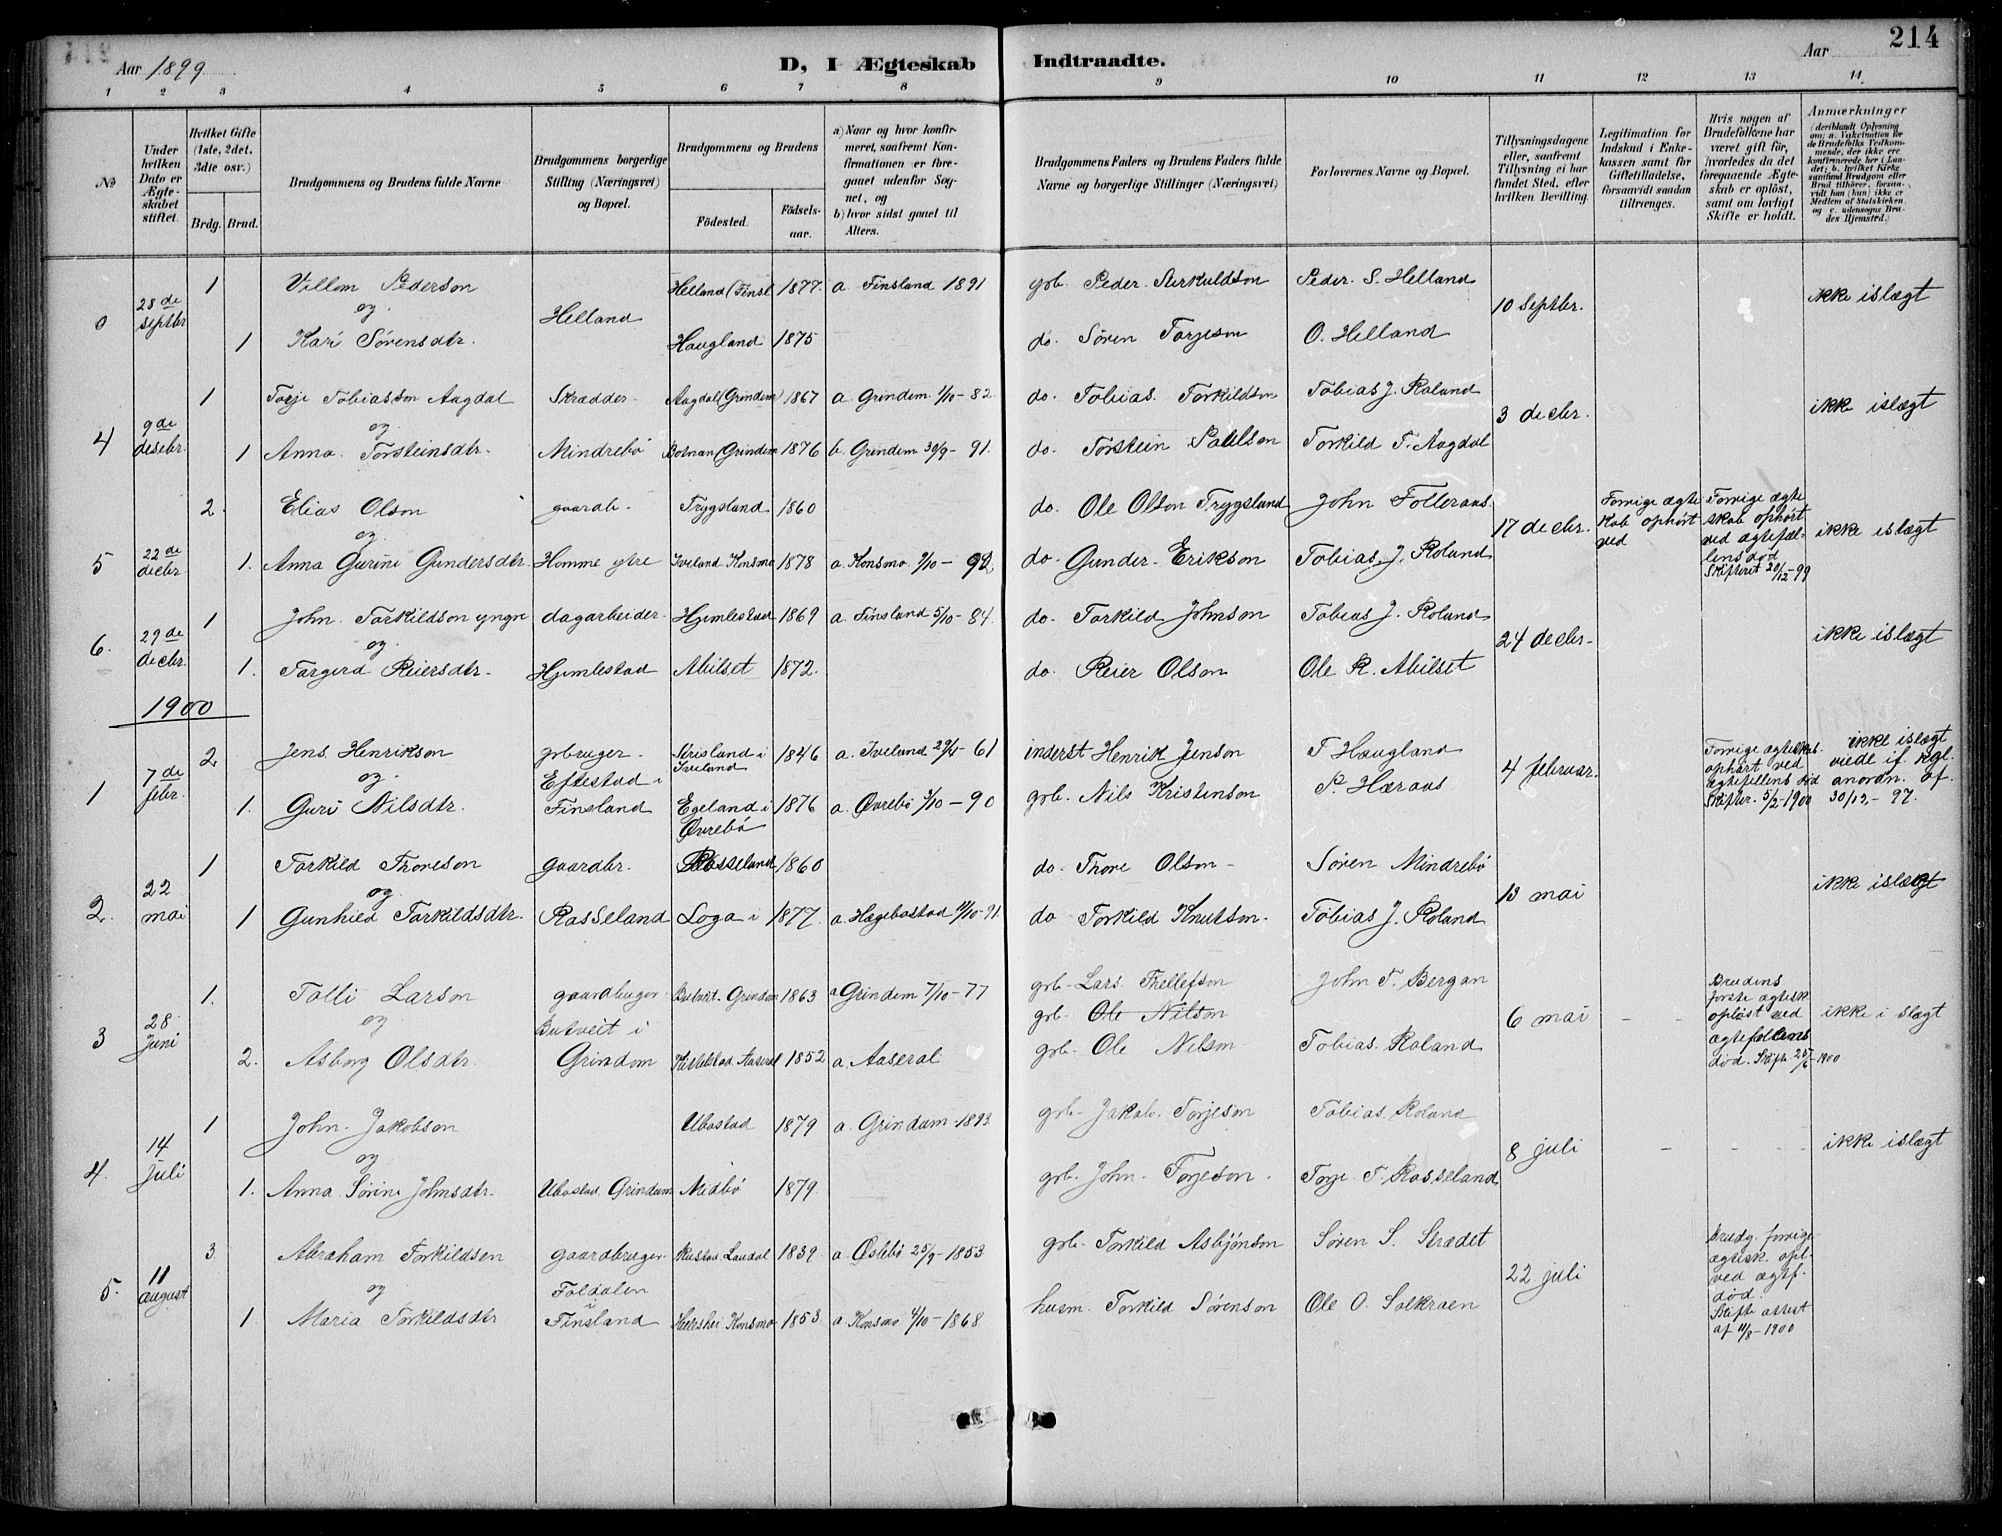 214
Aar 1899
D, I Ægteskab Indtraadte.
Aar
1 2 3 4 5 6 7 8 9 10 11 12 13 14
№
Under hvilken Dato er Ægteskabet stiftet.
Hvilket Gifte (1ste, 2det, 3die osv.)
Brdg. Brud.
Brudgommens og Brudens fulde Navne
Brudgommens borgerlige Stilling (Næringsvei) og Bopæl.
Brudgommens og Brudens
Fødested.
Fødsels-aar.
a) Naar og hvor konfirmeret, saafremt Konfirmationen er foregaaet udenfor Sognet, og
b) hvor sidst gaaet til Alters.
Brudgommens Faders og Brudens Faders fulde Navne og borgerlige Stillinger (Næringsvei)
Forlovernes Navne og Bopæl.
Tillysningsdagene eller, saafremt Tillysning ei har fundet Sted, efter hvilken Bevilling.
Legitimation for Indskud i Enkekassen samt for Giftetilladelse, forsaavidt saadan tiltrænges.
Hvis nogen af Brudefolkene har været gift før, hvorledes da det foregaaende Ægteskab er opløst, samt om lovligt Skifte er holdt.
Anmærkninger (deriblandt Oplysning om: a. Vakcination for de Brudefolks Vedkommende, der ikke ere konfirmerede her i Landet; b. hvilket Kirkesamfund Brudgom eller Brud tilhører, forsaavidt han (hun) ikke er Medlem af Statskirken, og c. udensogns Brudes Hjemsted.)
0 28de septbr 1 Villom Pederson Helland (Finsl 1877. a. Finsland 1891 grb. Peder Sterkuldson Peder. S. Helland 10 septbr. ikke islægt
og Helland
1 Kari Sørensdtr. Haugland 1875 do. Søren Torjeson O. Helland
4 9de desebr. 1 Torje Tobiasson Aagdal Skrædder Aagdal (Grindem) 1867 a. Grindem 1/10-82. do. Tobias. Torkildson Tobias J. Roland 3 decbr. ikke islægt
og
1 Anna. Torsteinsdtr. Mindrebö Botnan (Grindem 1876 b. Grindem 30/9-91. do. Torstein Paulson Torkild T. Aagdal
5 22de decbr 2. Elias Olson gaardb. Trygsland 1860 do. Ole Olson Trygsland John Folleraas 17 decbr. Forrige ægteskab ophørt ved Forrige ægteskab ophørt ved ægtefællens død Skifteret 20/12-99 ikke islægt
og
1. Anna Gurine Gundersdtr. Homme ytre Iveland Konsmo 1878 a. Konsmo 9/10-92 do. Gunder. Erikson Tobias J. Roland
6. 29de decbr. 1 John. Torkildson yngre dagarbeider Hjemlestad 1869 a. Finsland 5/10-84. do. Torkild Johnson Tobias J. Roland 24 decbr- ikke islægt
og
1. Torgerd Reiersdtr. Hjemlestad Abilset 1872. do. Reier Olson Ole R. Abilset
1900
1 7de febr. 2 Jens. Henrikson grbruger. i Iveland 1846 a. Iveland 29/4-61 inderst Henrik Jenson T. Haugland 4 februar. Forrige ægteskab ophørt ved ægtefellens død Skifter. 5/2-1900 ikke islægt viede if. kgl. anordn. af 30/12-97.
og Eftestad i
1. Guri Nilsdtr. Finsland Egeland i Øvrebö 1876 a. Øvrebö 3/10-90 grb. Nils Kristenson P. Høraas
2. 22 mai 1 Torkild Thoreson gaardbr. Rosseland 1860 do. Thore Olson Søren Mindrebö 13 mai ikke islægt
og
1 Gunhild Torkildsdtr. Rosseland Loga i 1877. a. Hægebostad 11/10-91 do Torkild Knutson. Tobias J. Roland
3 28 Juni 1. Tolli Larson gaardbruger Butveit. Grindem 1863 a Grindem 7/10-77 grb. Lars Thellefson John T. Bergan 6 mai - - Brudens første ægtesk. opløst ved ægtefællens død. Skifte 25/6-1900 ikke i slægt
og Butveit i grb. Ole Nilson
2. Asborg Olsdtr. Grindem Aaseral 1852 a. Aaseral grb. Ole Nilson Tobias. Roland
4. 14 juli 1 John. Jakobson Ubostad 1879 a. Grindum-1893. grb. Jakob. Torjeson Tobias. Roland 8 juli - - ikke islægt
og
1. Anna Sørine Johnsdtr. Ubostad. Grindum Nedbö 1879. grb. John. Torjeson. Torje T. Rosseland
5. 11 august 3 Abraham Torkildsen gaardbruger Laudal 1839. a. Øslebö 25/9-1853 grb. Torkild Asbjönson Søren S. Strædet 22 juli Brudg. forrige ægtesk. opl. ved ægtf. død. Skifte attest af 11/8-1900
og Foldalen i
1. Maria Torkildsdtr Finsland Konsmo 1853 a Konsmo 4/10-1868 husm. Torkild Sørenson Ole O. Solkraen